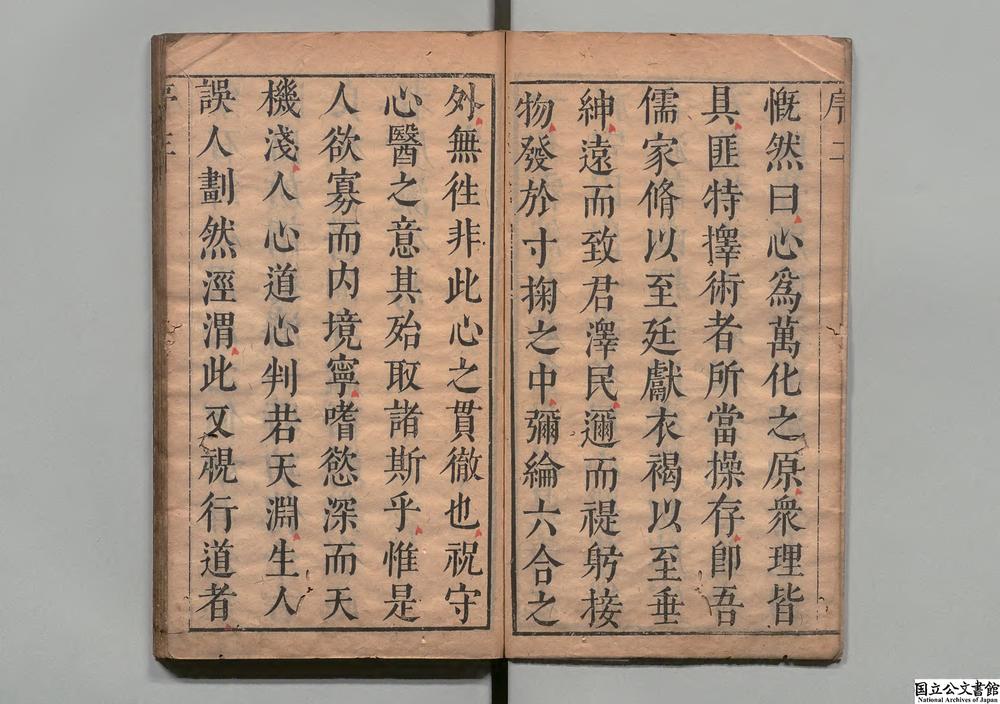 序二
慨然曰心爲萬化之原衆理皆
具匪特擇術者所當操存卽吾
儒家脩以至廷獻衣褐以至垂
紳遠而致君澤民邇而禔躬接
物發於寸掬之中彌綸六合之
外無徃非此心之貫徹也祝守
心醫之意其殆取諸斯乎惟是
人欲寡而内境寧嗜慾深而天
機淺人心道心判若天淵生人
誤人劃然涇渭此又視行道者
序三
国立公文書館
National Archives of Japan